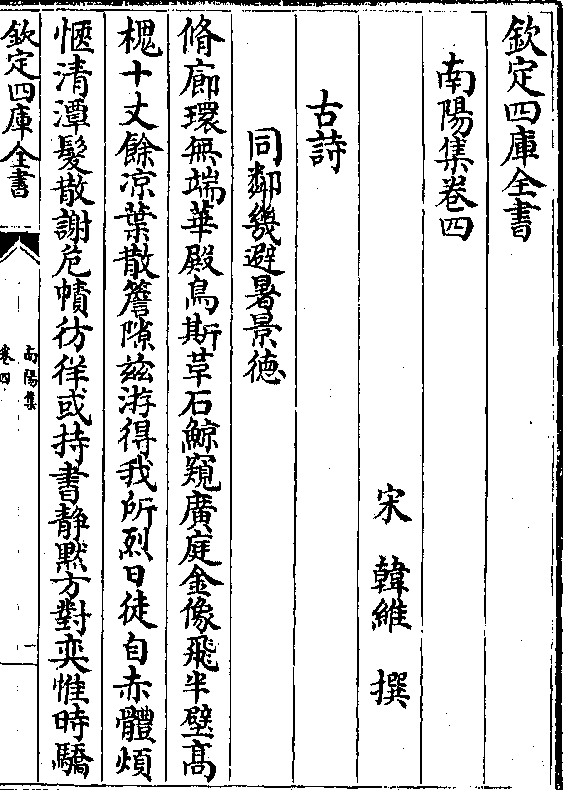 欽定四庫全書
南陽集卷四
宋 韓維 撰
古詩
同鄰幾避暑景德
脩廊環無端華殿鳥斯革石鯨窺廣庭金像飛半壁髙
槐十丈餘凉葉散簷隙兹游得我所烈日徒自赤體煩
愜清潭髮散謝危幘彷徉或持書静黙方對奕惟時驕
欽定四庫全書
南陽集
卷四
一